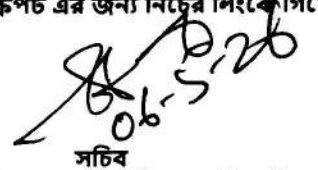 এর জন্য নিচের লিংকে
06-5-26
সচিব